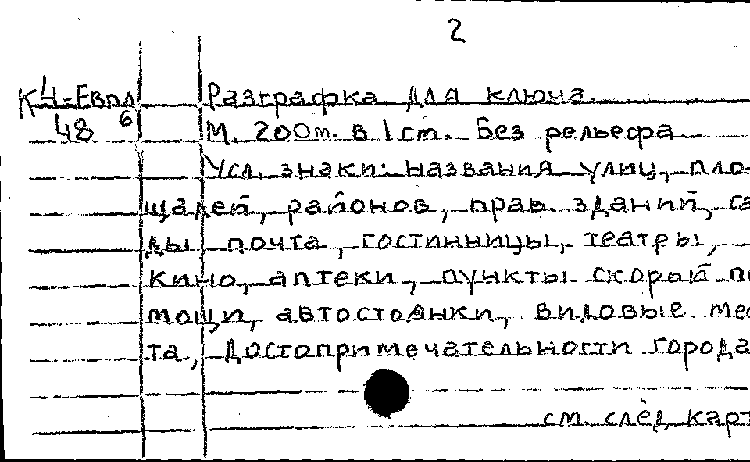 2
К4-Евпл Разграфка для ключа.
48 6 М. 200т. в 1ст. Без рельефа
Усл. знаки: названия улиц, пло-
щадей, районов, прав. зданий, са
ды, почта, гостинницы, театры,
кино, аптеки, пункты скорой по
мощи, автостоянки, видовые мес
та, достопримечательности города
см. след. карт